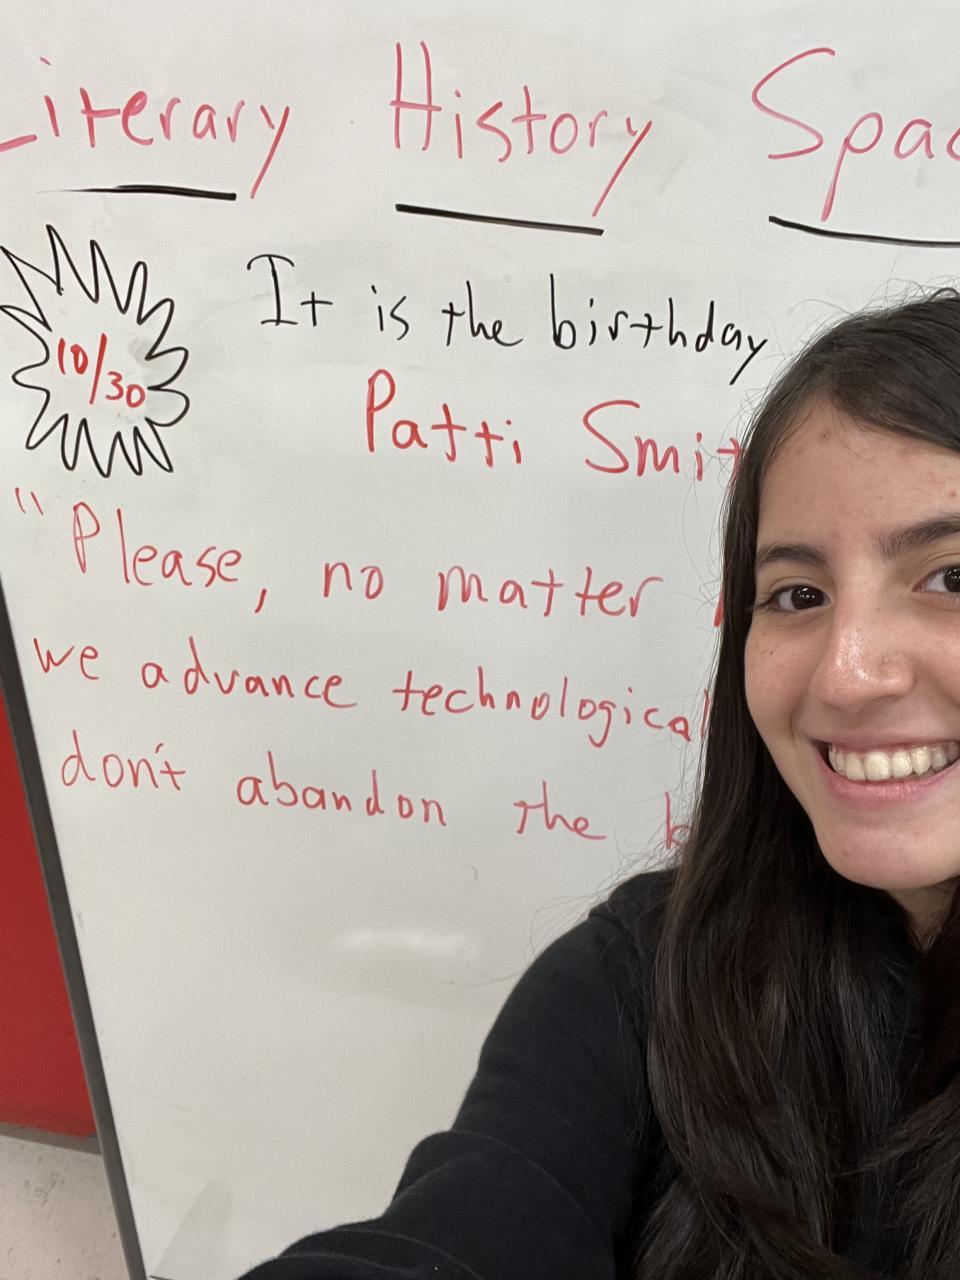 Literary History Spac
It is the birthday
10/30
Patti Smit
"Please, no matter
we advance technological
don't abandon the b